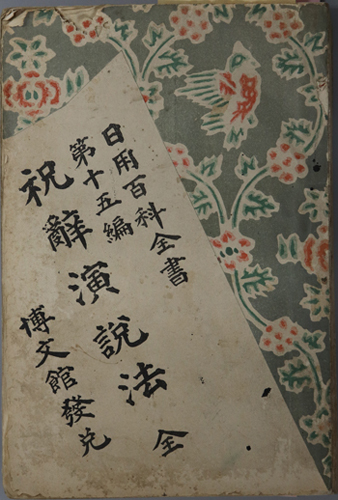 日用百科全書
第十五編
祝辭演説法 全
博文館發兌